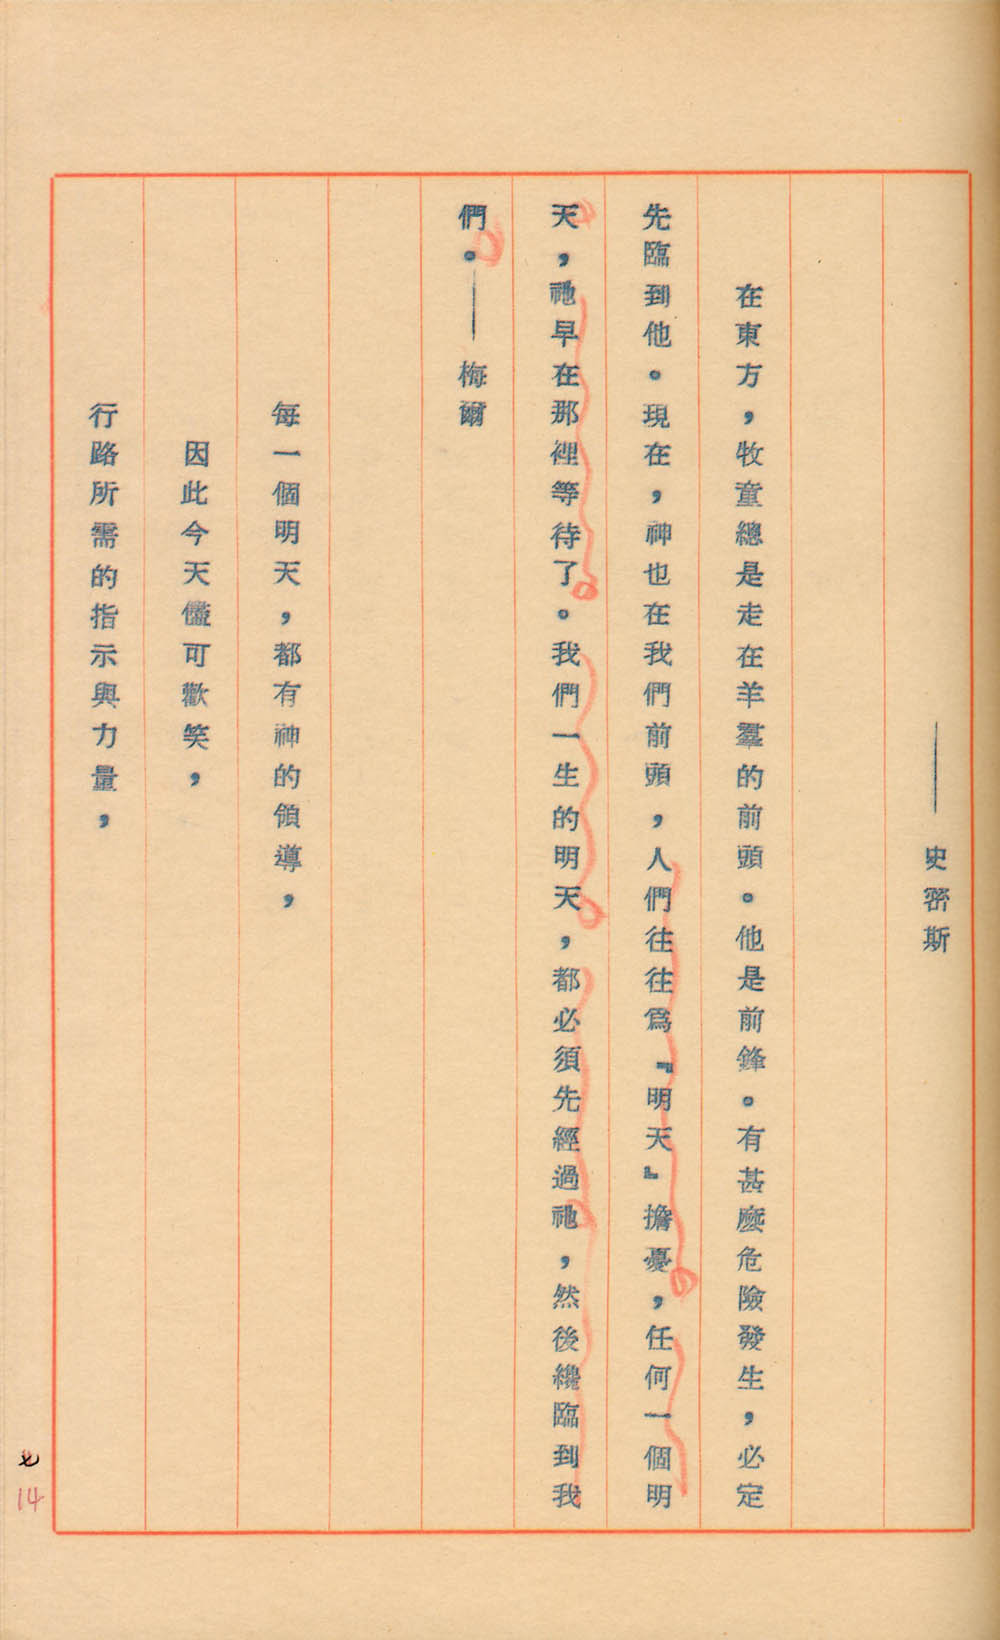 ——史密斯
在東方，牧童總是走在羊羣的前頭。他是前鋒。有甚麼危險發生，必定
先臨到他。現在，神也在我們前頭，人們往往爲『明天』擔憂，任何一個明
天，祂早在那裡等待了。我們一生的明天，都必須先經過祂，然後纔臨到我
們。——梅爾
每一個明天，都有神的領導，
因此今天儘可歡笑，
行路所需的指示與力量，
七
14